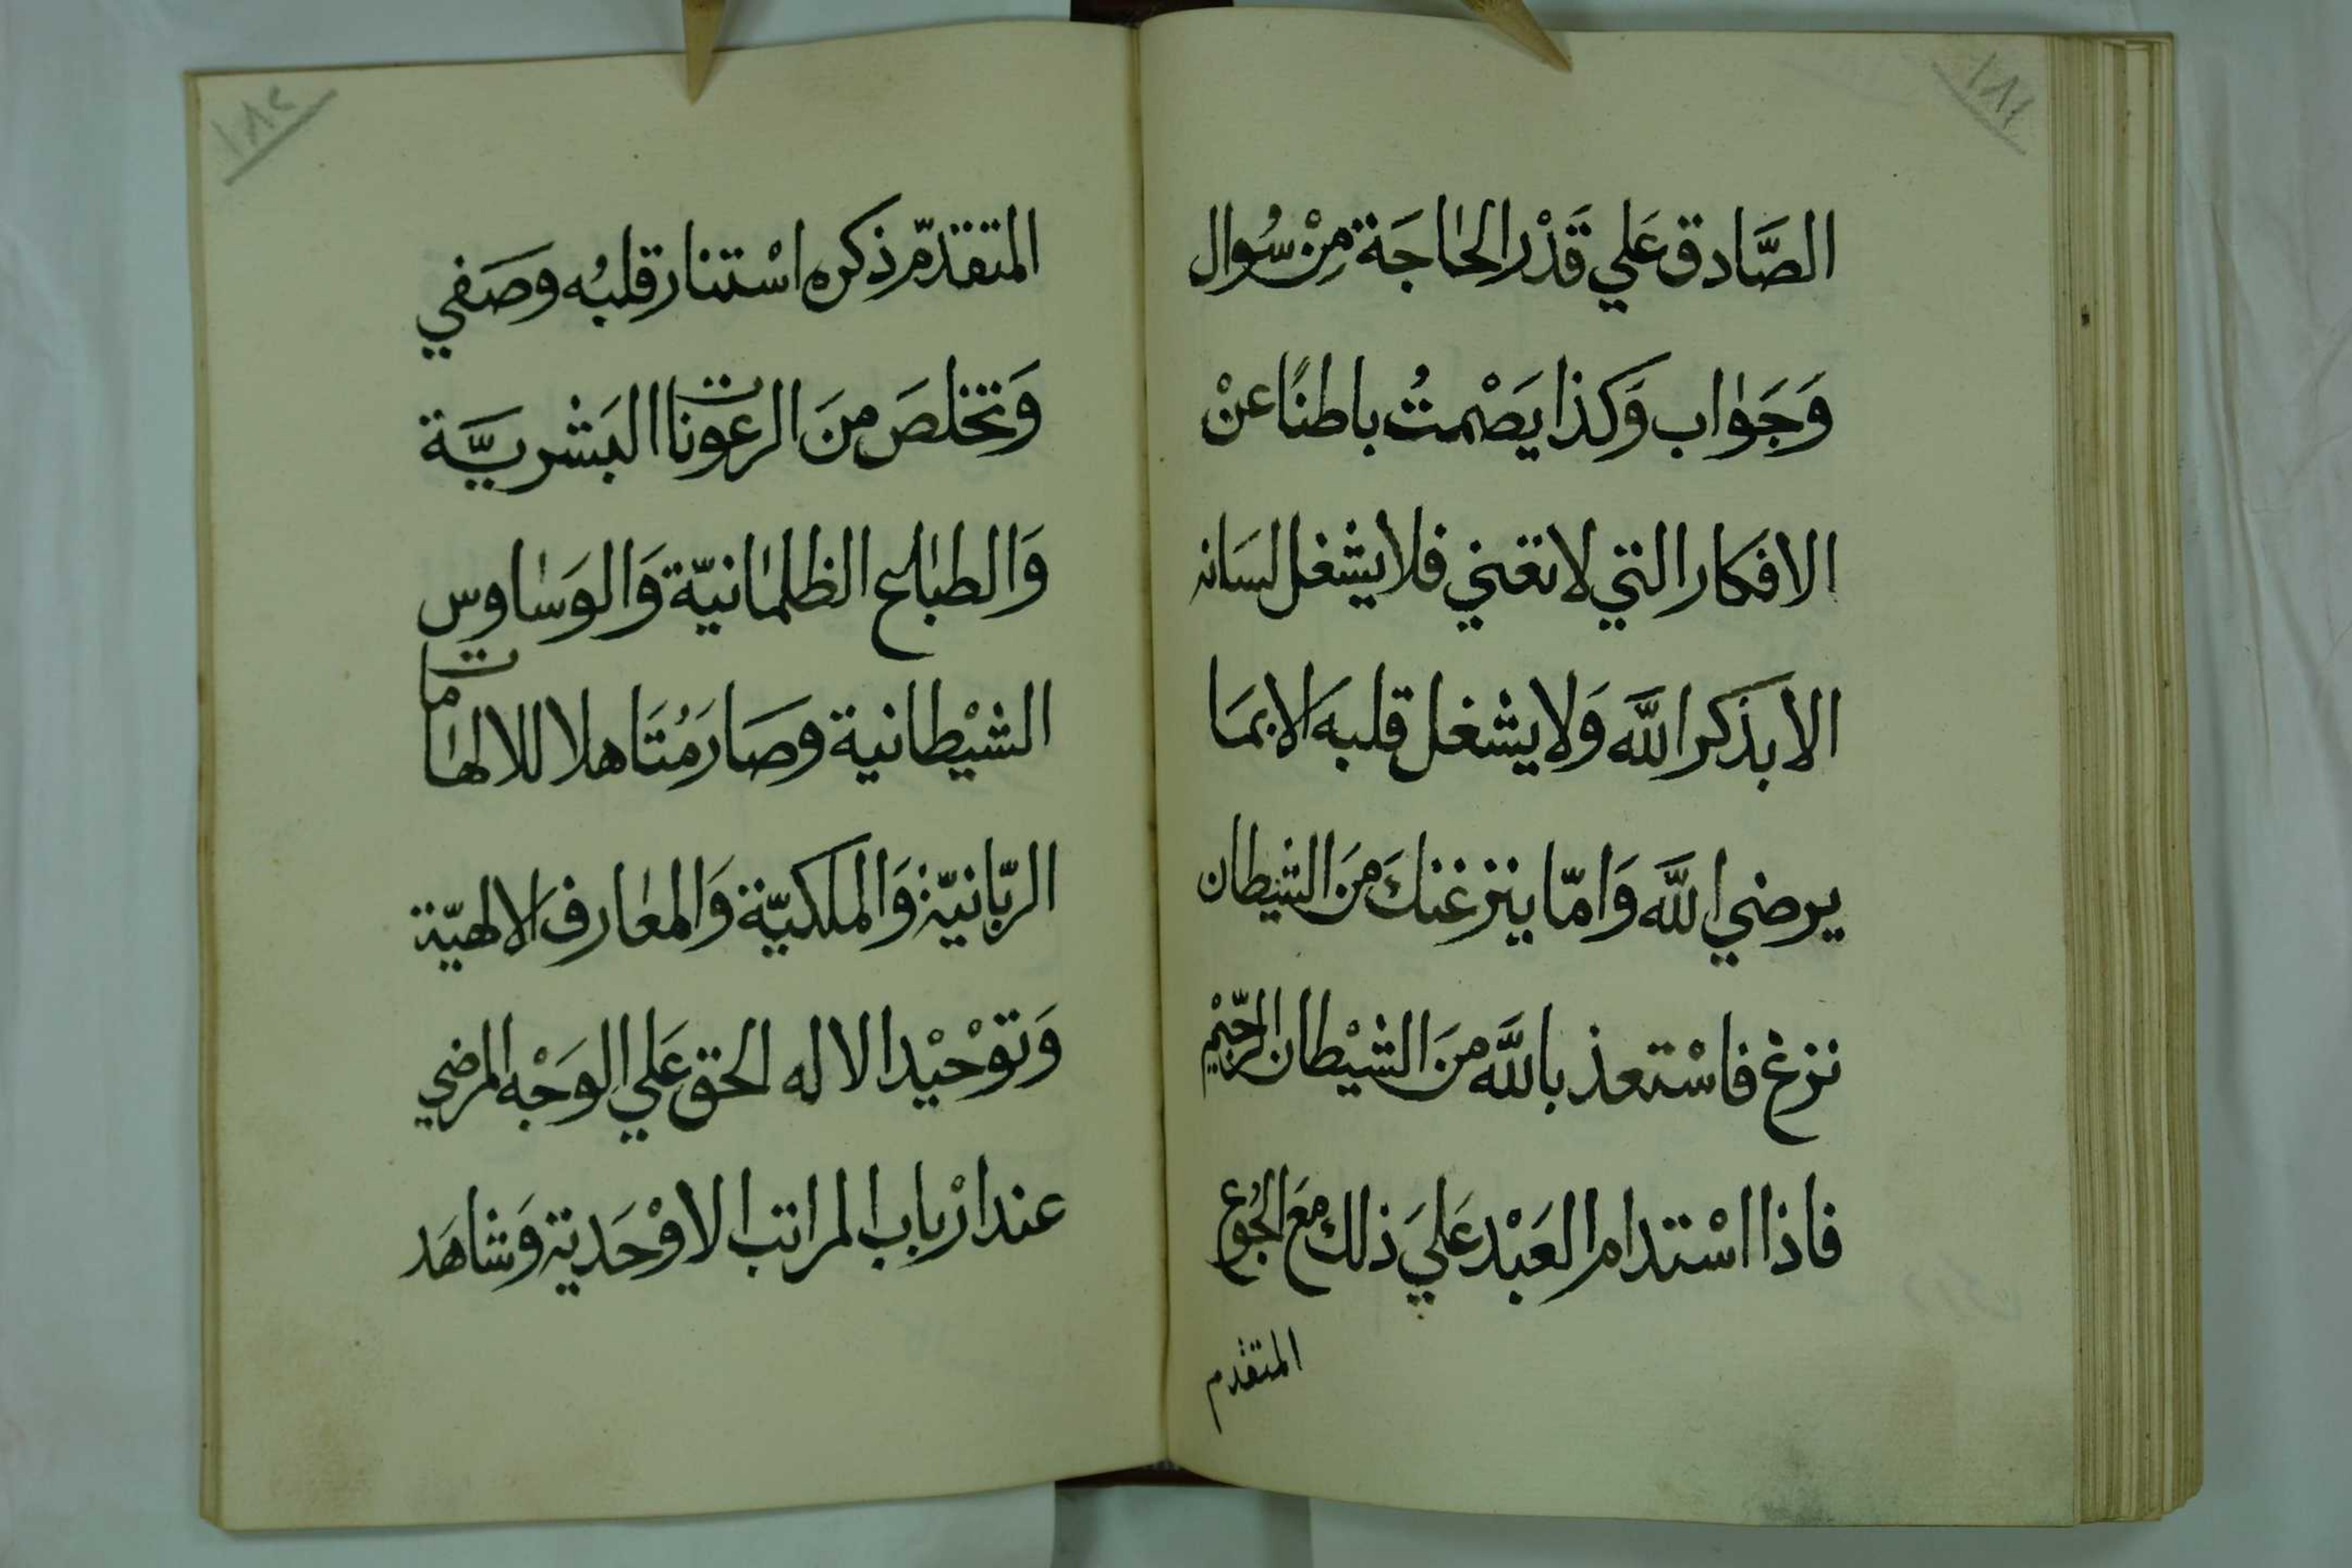 ١٨١
الصَّادق عَلي قَدْر الحٰاجَة مِنْ سُّوال
وَجَوٰاب وَكذا يَصْمتُ باطنًا عنْ
الافكار التي لا تغني فلا يشْغل لسَانه
الا بذكر اللَّه وَلا يشغل قلبه الا بمَا
يرضي اللَّه وَامّا ينزغنكَ منَ الشيطان
نزغ فاسْتعذ باللَّه منَ الشيْطان الرّجيْم
فاذا اسْتدام العَبْد عَليَ ذلك معَ الجُوع
المتقدم
١٨٢
المتقدّم ذكره اسْتنار قلبُه وصَفي
وَتخلصَ منَ الرعونات البَشْريَّة
وَالطبٰايع الظلمٰانيّة وَالوَسٰاوس
الشيْطانية وصَارَ مُتَاهلا للالهٰامات
الربّانيّة وَالملكيّة وَالمعٰارف الالهيّة
وَتوْحيْد الاله الحق عَلي الوَجْه المرضي
عند ارْباب المراتب الاوْحَدية وَشاهَد